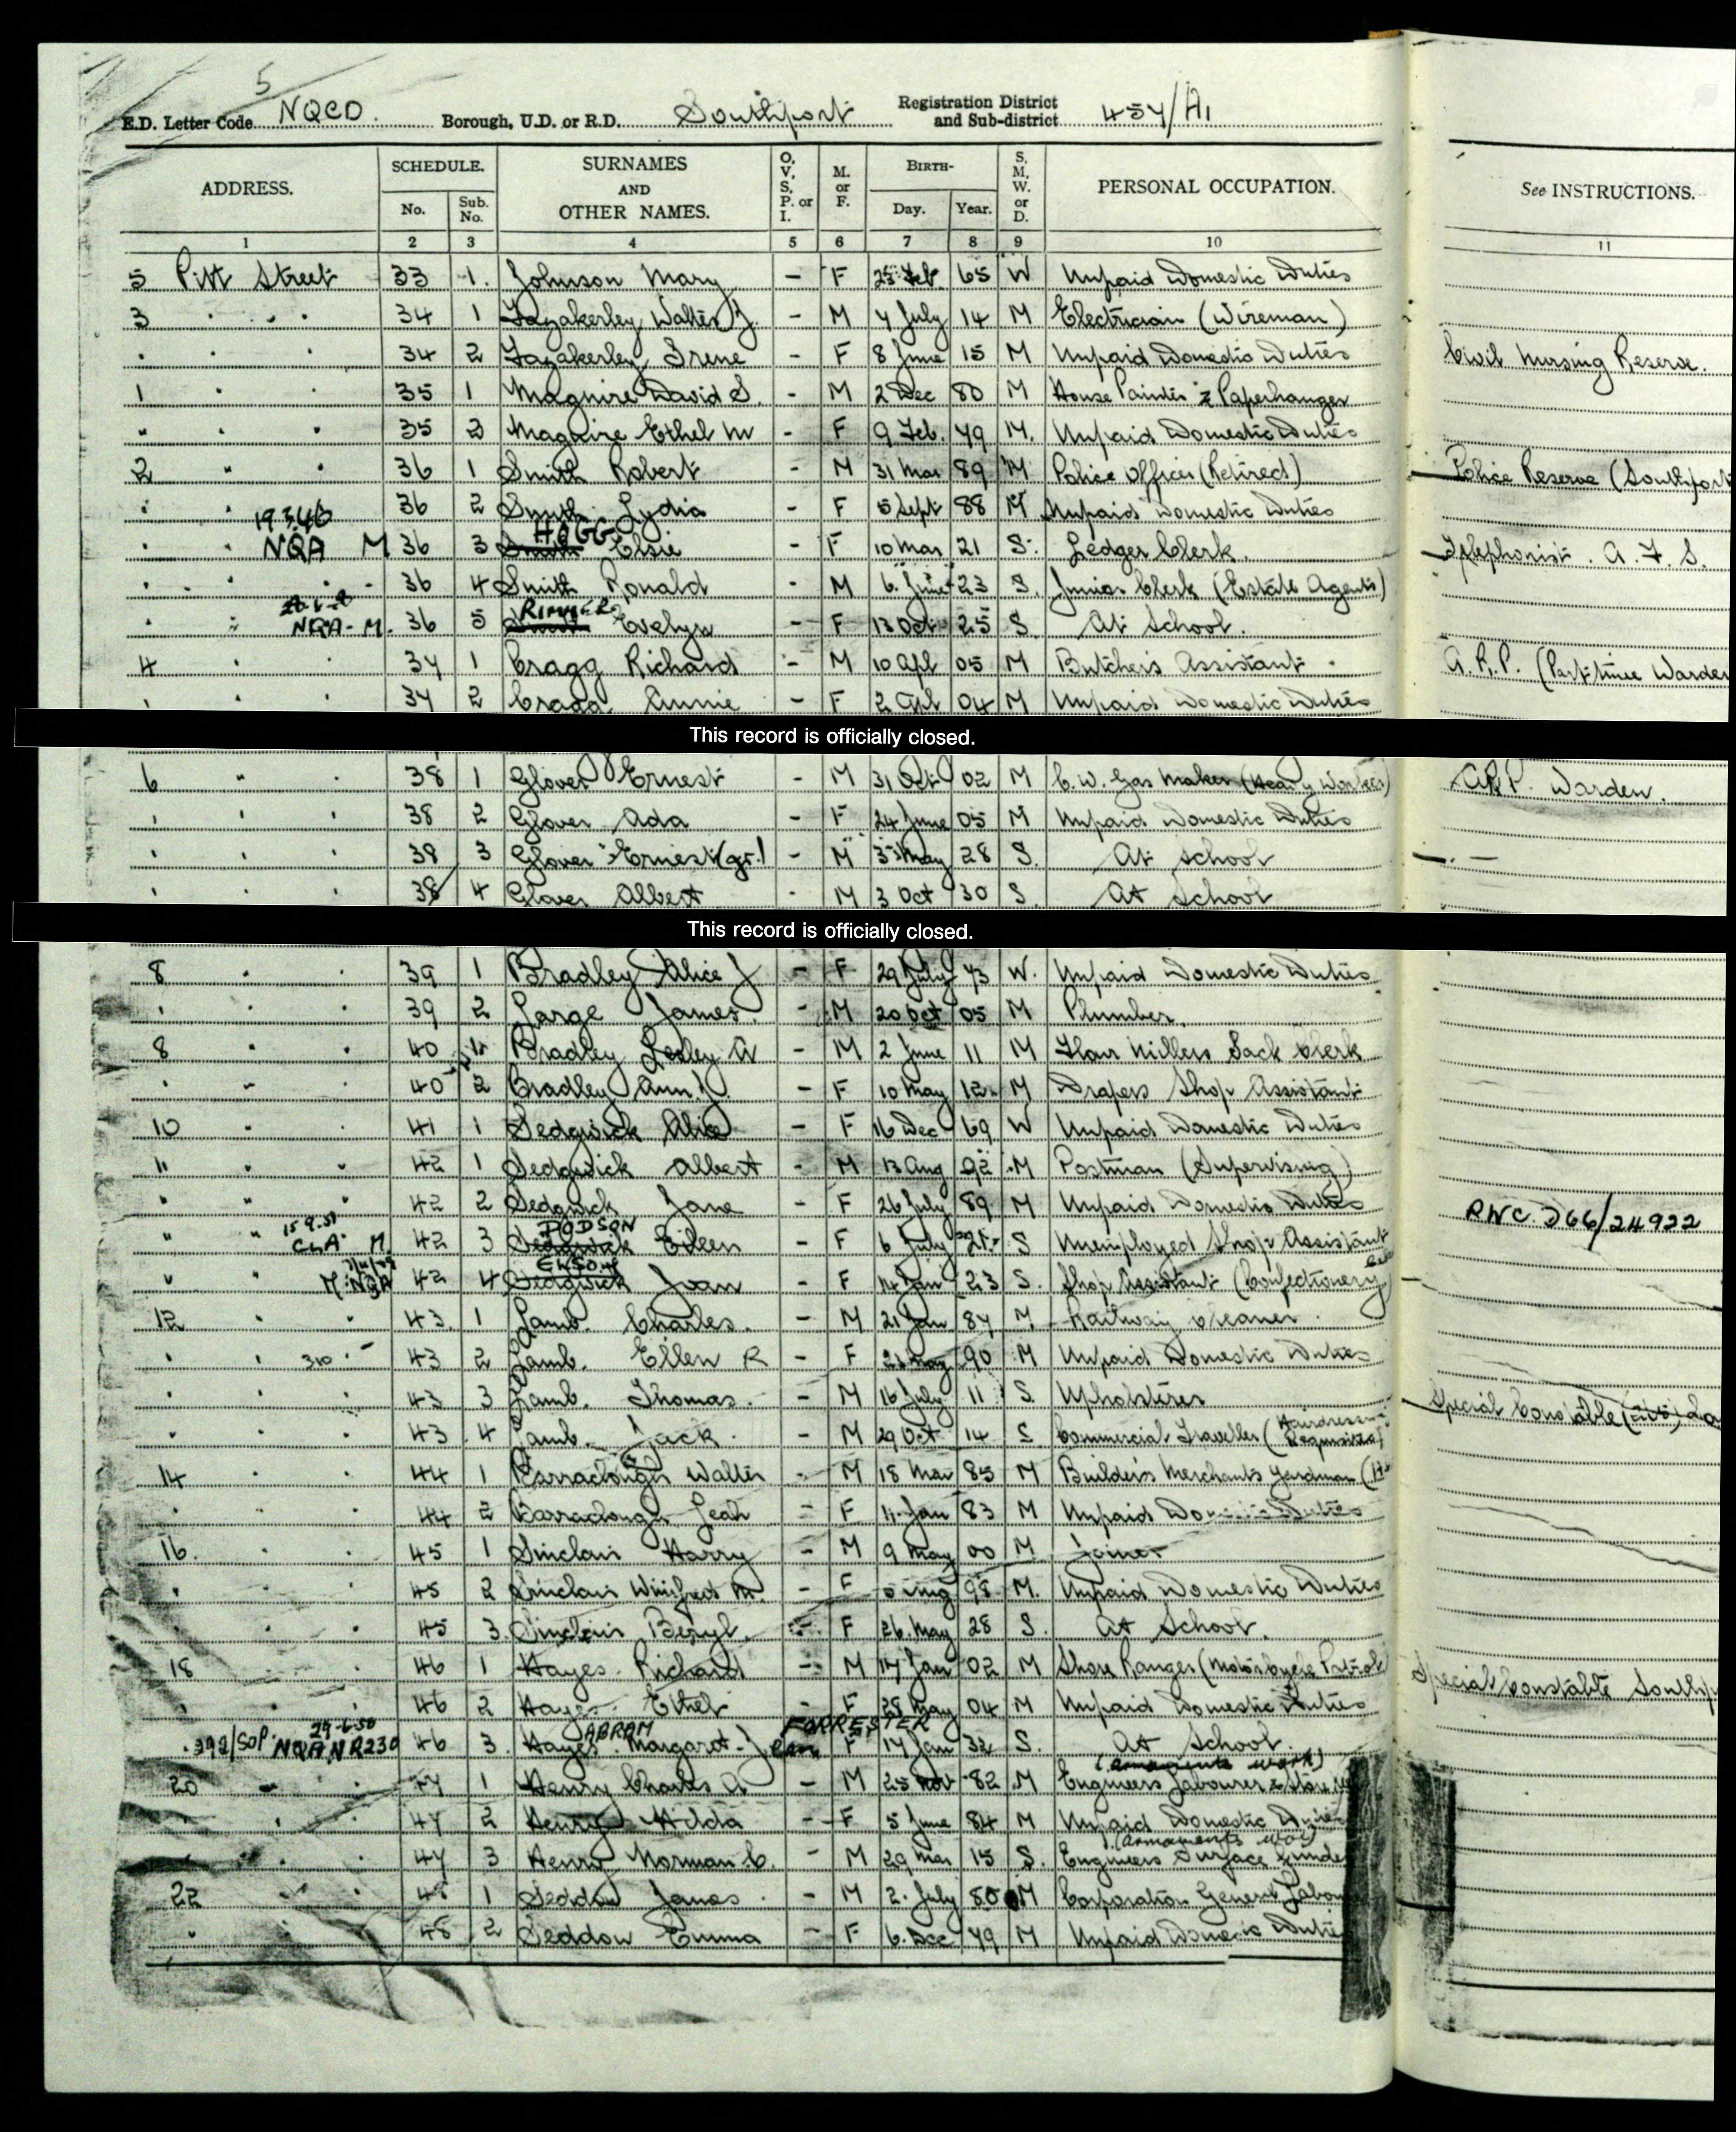 5
E.D. Letter Code NQCD. Borough, U.D. or R.D. Southport Registration District and Sub-district 454/A1
ADDRESS. SCHEDULE. No. Sub. No. SURNAMES AND OTHER NAMES. O, V, S, P. or I. M. or F. BIRTH- Day. Year. S, M, W, or D. PERSONAL OCCUPATION. See INSTRUCTIONS.
1 2 3 4 5 6 7 8 9 10 11
5 Pitt Street 33 1. Johnson Mary – F 25 Feb. 65 W Unpaid Domestic Duties
3 " " 34 1 Fazakerley Walter J. – M 4 July 14 M Electrician (Wireman)
" " " 34 2 Fazakerley Irene – F 8 June 15 M Unpaid Domestic Duties Civil Nursing Reserve.
1 " " 35 1 Maguire David S. - M 2 Dec 80 M House Painter & Paperhanger
" " " 35 2 Maguire Ethel M - F 9 Feb. 79 M. Unpaid Domestic Duties
2 " " 36 1 Smith Robert - M 31 Mar 89 M Police Officer (Retired) Police Reserve (Southport
" " 36 2 Smith Lydia - F 5 Sept 88 M Unpaid Domestic Duties
19.3.46 HOGG
" " NQA M 36 3 Smith Elsie - F 10 Mar 21 S. Ledger Clerk. Telephonist. A. F. S.
" " " 36 4 Smith Ronald - M 6. June 23 S. Junior Clerk (Estate Agents)
RIMMER
" " NQA-M. 36 5 Evelyn – F 13 Oct 25 S At School.
4 " " 37 1 Cragg Richard – M 10 Apl 05 M Butchers Assistant A.R.P. (Part time Warden
" 37 2 Cragg Annie – F 2 Apl 04 M Unpaid Domestic Duties
This record is officially closed.
6 " " 38 1 Glover Ernest - M 31 Oct 02 M C.W. Gas Maker (Heavy Worker) A.R.P. Warden.
" " " 38 2 Glover Ada – F 24 June 05 M Unpaid Domestic Duties
" " " 38 3 Glover Ernest (jr.) – M 3 May 28 S. At School
" " " 38 4 Glover Albert - M 3 Oct 30 S At School
This record is officially closed.
8 " " 39 1 Bradley Alice J – F 29 July 73 W. Unpaid Domestic Duties
" " " 39 2 Large James. - M 20 Oct 05 M Plumber.
8 " " 40 1 Bradley Lesley A - M 2 June 11 M Flour Millers Sack Clerk
" " " 40 2 Bradley Ann J. – F 10 May 12 M Drapers Shop Assistant
10 " " 41 1 Sedgwick Alice – F 16 Dec 69 W Unpaid Domestic Duties
" " " 42 1 Sedgwick Albert - M 13 Aug 92 M Postman (Supervising)
" " " 42 2 Sedgwick Jane – F 26 July 89 M Unpaid Domestic Duties RWC 266/24922
15.9.51 DODSON
" " CLA M 42 3 Sedgwick Eileen – F 6 July 21 S Unemployed Shop Assistant
" " M. NQA 42 4 Sedgwick Joan – F 14 Jan 23 S. Shop Assistant (Confectionery
12 " " 43. 1 Lamb. Charles. – M 21 Jan 87 M Railway Cleaner.
" " 310 43 2 Lamb. Ellen R – F 21 May 90 M Unpaid Domestic Duties
" " " 43 3 Lamb. Thomas. – M 16 July 11 S. Upholsterer Special Constable
" " " 43 4 Lamb. Jack. – M 29 Oct 14 S. Commercial Traveller (Hairdressing Requisites)
14 " " 44 1 Barraclough Walter - M 18 Mar 85 M Builders Merchants Yardman
" " " 44 2 Barraclough Leah – F 11. Jan 83 M Unpaid Domestic Duties
16. " " 45 1 Sinclair Harry – M 9 May 00 M Joiner
" " " 45 2 Sinclair Winifred M. – F Aug 98 M. Unpaid Domestic Duties
" " " 45 3 Sinclair Beryl. – F 26. May 28 S. At School.
18 " " 46 1 Hayes. Richard – M 17 Jan 02 M Shore Ranger (Motor bycycle Patrol) Special Constable Southp
46 2 Hayes Ethel - F 28 May 04 M Unpaid Domestic Duties
29-6-50 ABRAM FORRESTER
392/SOP. NQA NR230 46 3. Hayes. Margaret. J F 17 Jan 32 S. At School.
(Armaments work)
20 " " 47 1 Henry Charles A. – M 25 Nov 82 M Engineers Labourer &
" " 47 2 Henry Hilda – F 5 June 84 M Unpaid Domestic Duties
(Armaments work)
" " 47 3 Henry Norman. C. – M 29 Mar 15 S. Engineers Surface
22 " " 48 1 Seddon James. - M 2. July 80 M Corporation General Labou
" 48 2 Seddon Emma – F 6. Dec 79 M Unpaid Domestic Duties